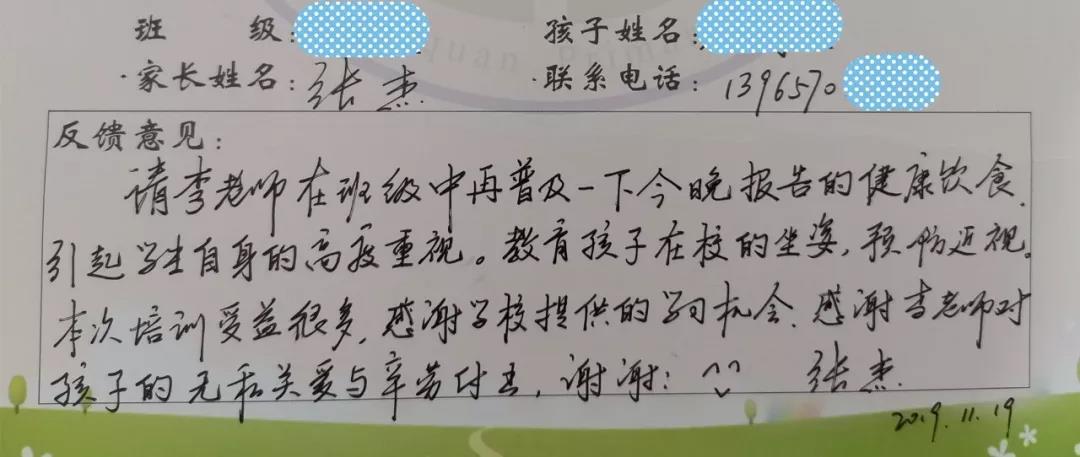 班 级:
孩子姓名:
·家长姓名: 张杰
·联系电话: 1396570
反馈意见:
请李老师在班级中再普及一下今晚报告的健康饮食.
引起学生自身的高度重视。教育孩子在校的坐姿,预防近视。
本次培训受益很多,感谢学校提供的学习机会.感谢李老师对
孩子的无私关爱与辛劳付出,谢谢! ^^ 张杰.
2019.11.19